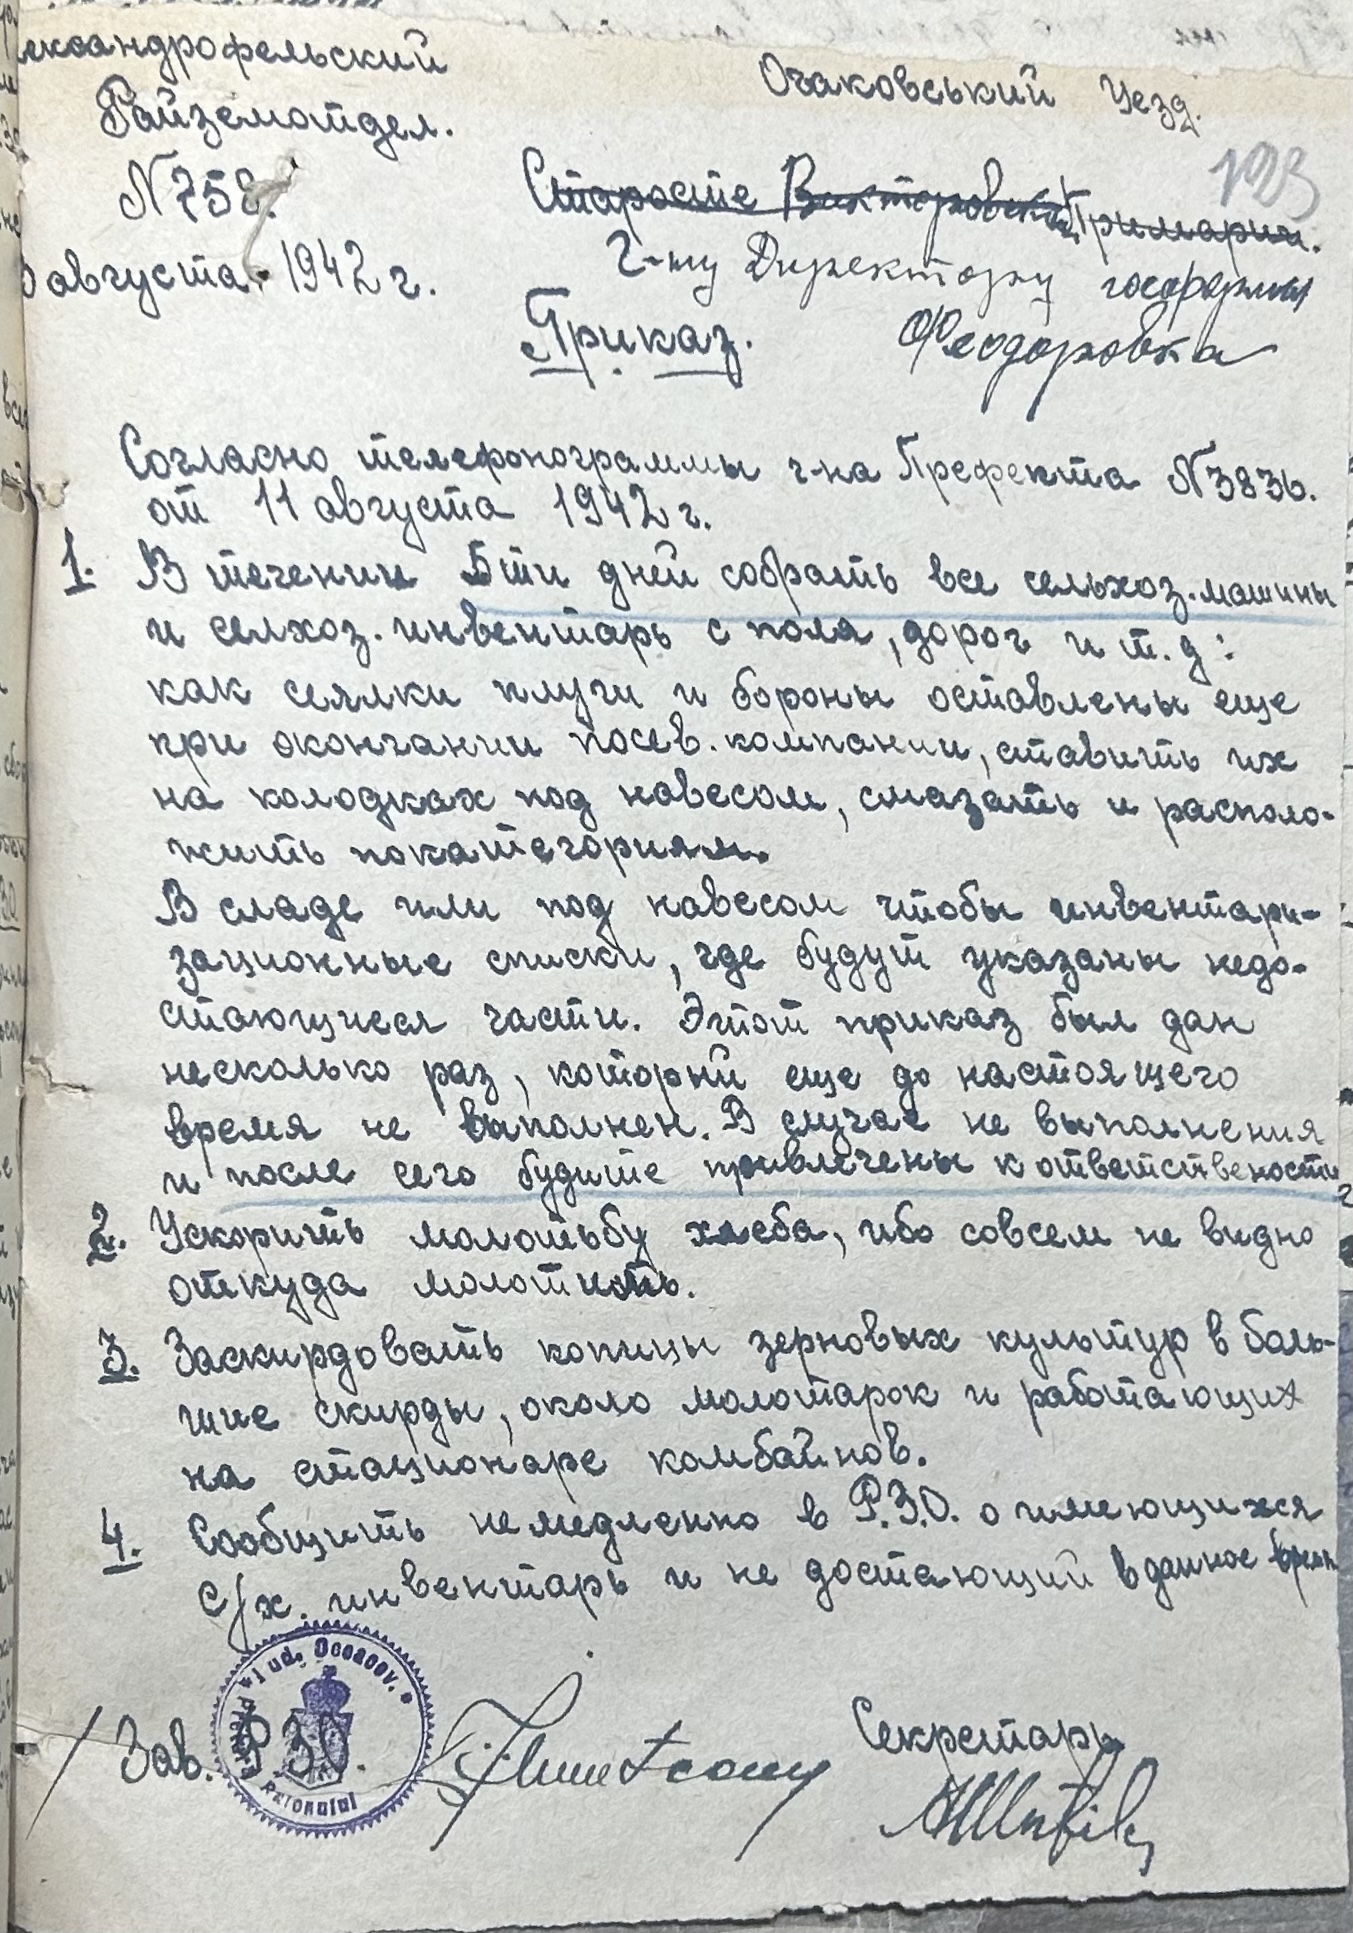 ександрофельский
Райземотдел.
N 758.
августа 1942 г.
Очаковський уезд.
123
Старосте Викторовской Примарии.
Г-ну Директору госфермы
Феодоровка
Приказ.
Согласно телефонограммы г-на Префекта N 3836.
от 11 августа 1942 г.
1. В течении 5ти дней собрать все сельхоз. машины
и селхоз. инвентарь с поля, дорог и т. д:
как сеялки плуги и бороны оставлены еще
при окончании посев. компании, ставить их
на колодках под навесом, смазать и располо-
жить покатегориям.
В сладе или под навесом чтобы инвентари-
зационные списки, где будут указаны недо-
стающиеся части. Этот приказ был дан
несколько раз, который еще до настоящего
время не выполнен. В случае не выполнения
и после сего будите привлечены к ответствености
2. Ускорить молотьбу хлеба, ибо совсем не видно
откуда молотить.
3. Заскирдовать копицы зерновых культур в боль-
шие скирды, около молотарок и работающих
на стационаре комбайнов.
4. Сообщить немедленно в Р.З.О. о имеющихся
с/х. инвентарь и не достающий в данное время
Зав. Р.З.О.
Секретарь
jud. Oceacov.
Raionului